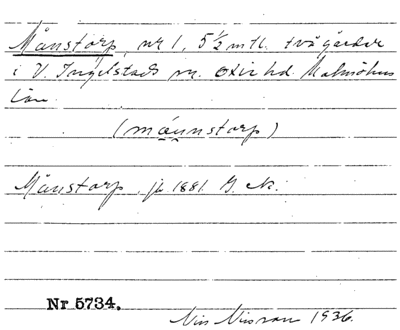 Månstorp, nr 1, 5½ mtl. två gårdar
i V. Ingelstads sn. Oxie hd. Malmöhus
län.
(månnstorp)
Månstorp. jb 1881. G. ek.
Nr 5734.
Nils Nilsson 1936.